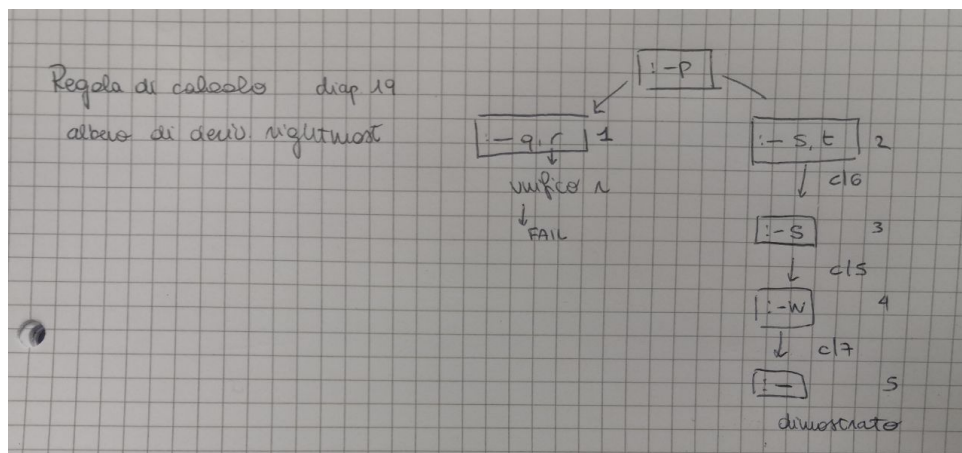 Regola di calcolo diap 19
albero di deriv. rightmost
:-p
:- q, r 1
unifico r
FAIL
:- s, t 2
cl6
:-s 3
cl5
:-w 4
cl7
:- 5
dimostrato